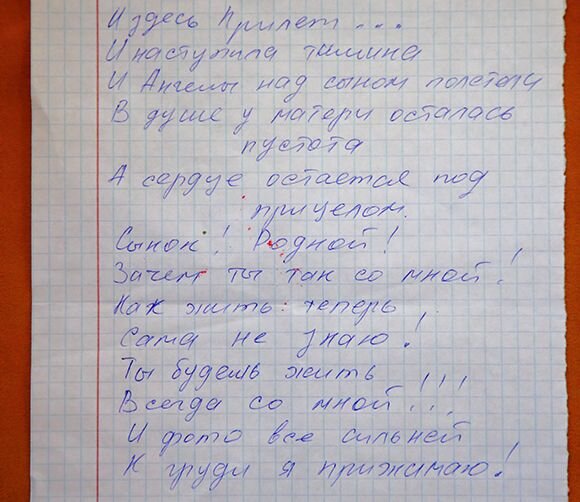 И здесь Прилет...
И наступила тишина
И Ангелы над сыном полетели
В душе у матери осталась
пустота
А сердце остается под
прицелом.
Сынок! Родной!
Зачем ты так со мной!
Как жить теперь
Сама не знаю!
Ты будешь жить
Всегда со мной!!!
И фото все сильней
К груди я прижимаю!